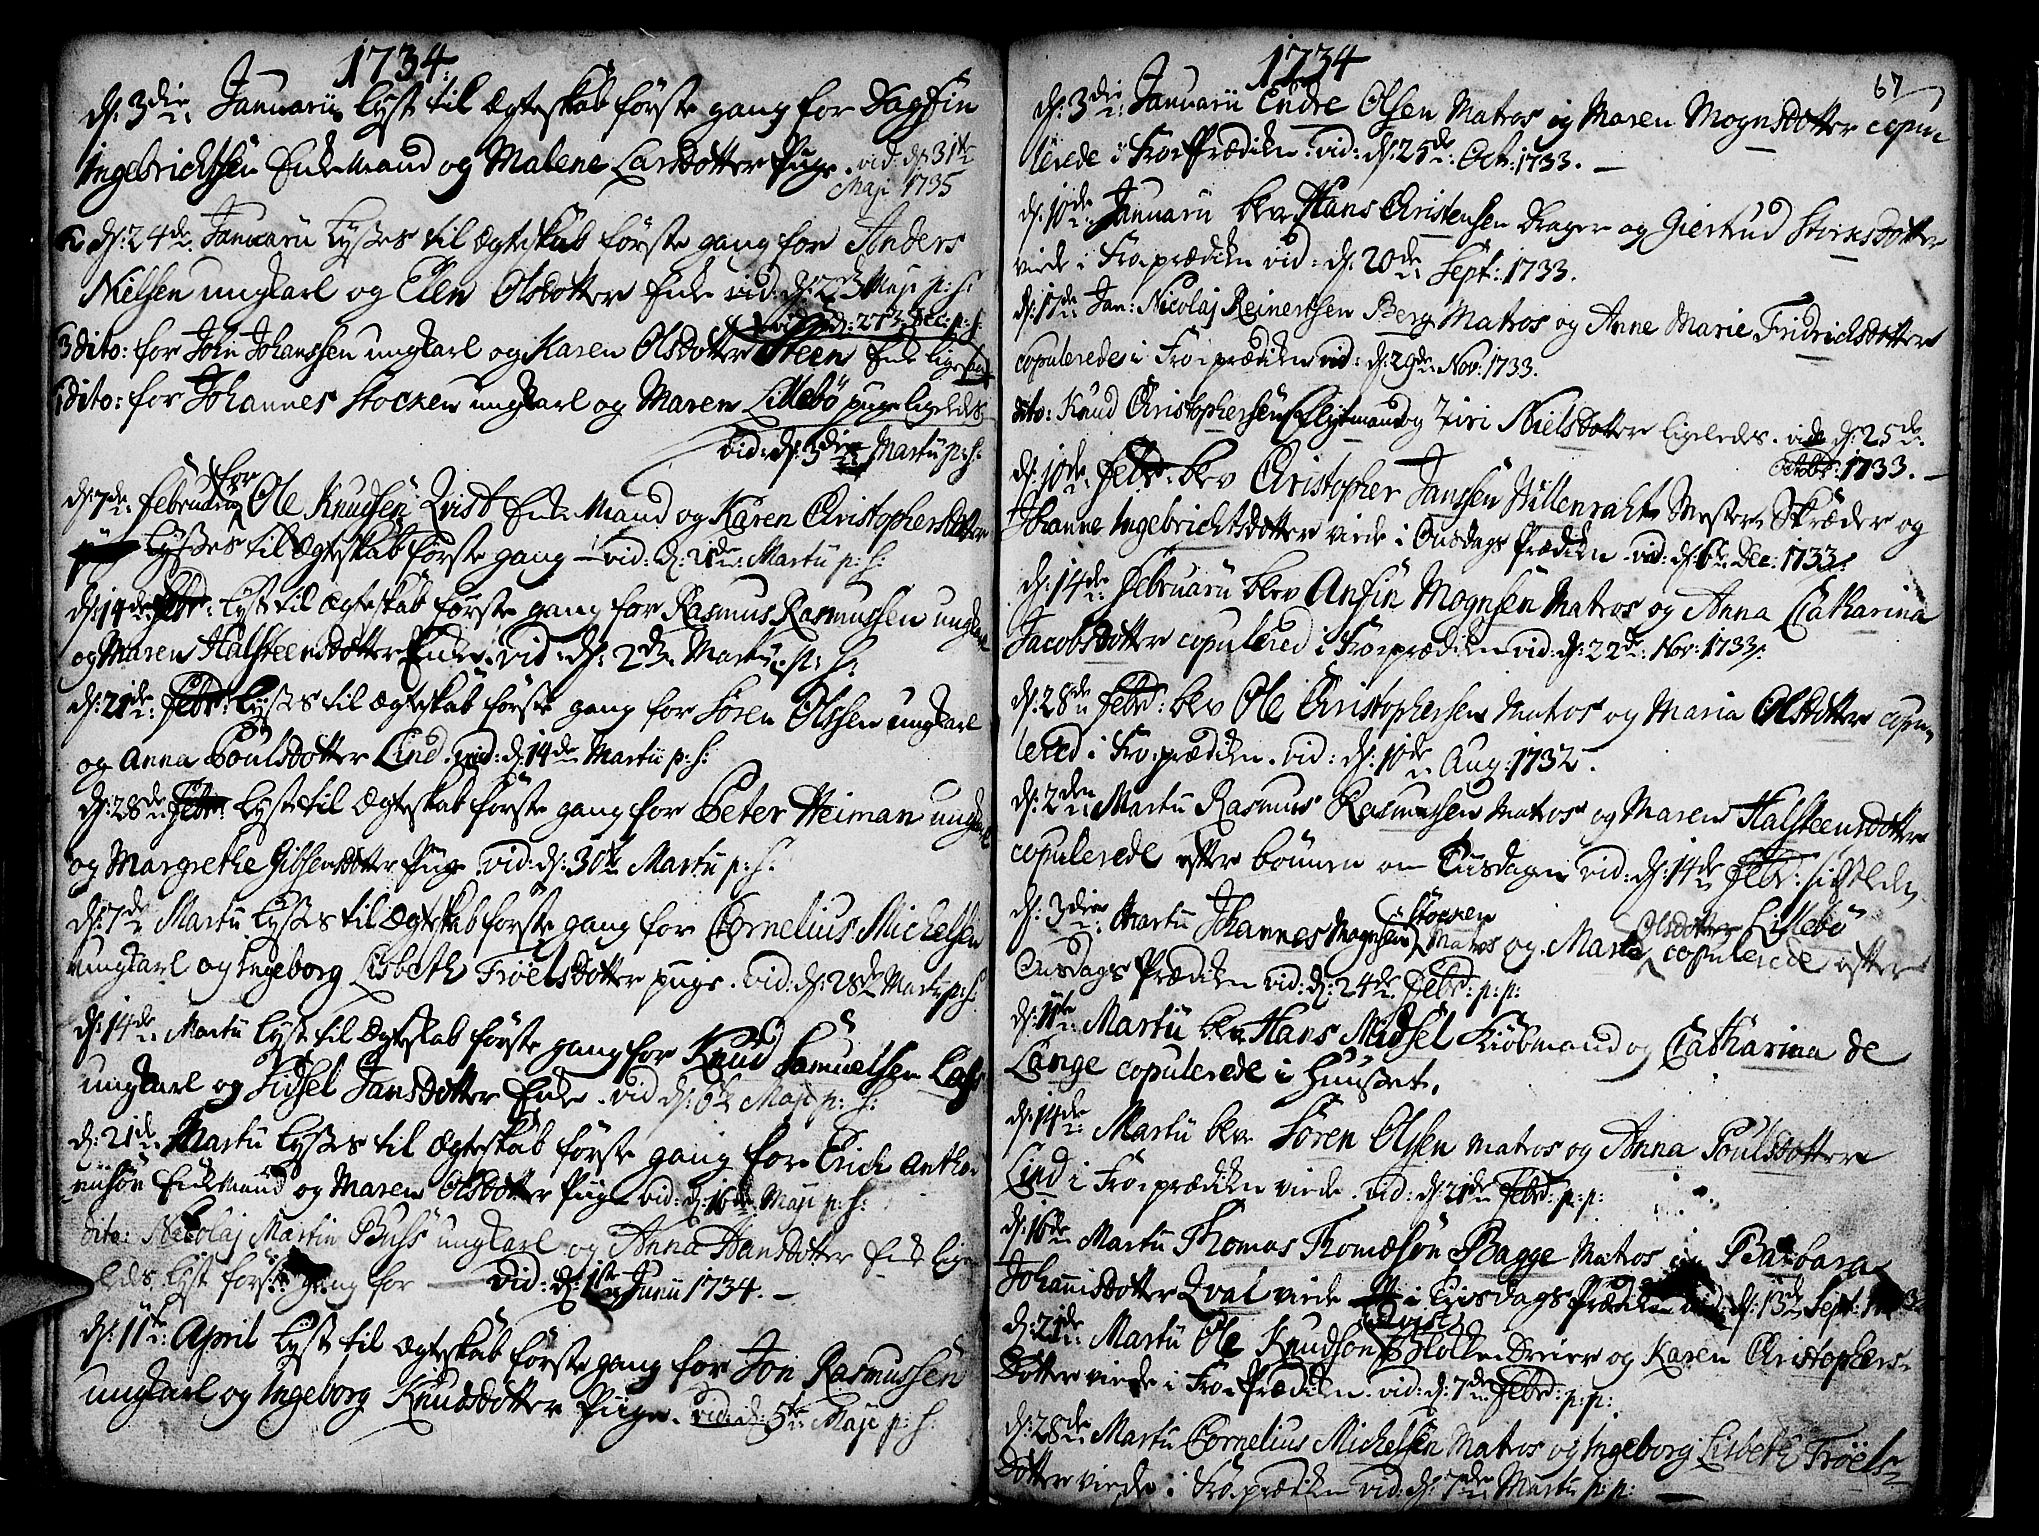 1734.
d: 3die Januarii lyst til Ægteskab første gang for Dagfin
Ingebrichtsen Enkemand og Malene Larsdotter Pige. vid: d: 31te
Maji 1735
d: 24de Januarii lystes til Ægteskab første gang for Anders
Nielsen ungkarl og Elen Olsdotter Enke vid: d: Maji p: s:
vid: d: 27de Dec: p: s:
dito: for John Johanssen ungkarl og Karen Olsdotter Steen Enke ligesaa
dito: for Johannes Stocken ungkarl og Maren Lillebö pige ligeledes
vid: d: 3die Martii p: s:
d: 7de Februarii for Ole Knudsen Qvist Enkemand og Karen Christophersdotter
lystes til Ægteskab første gang – vid: d: 21de Martii p: s:
d: 14de Febr: lyst til Ægteskab første gang for Rasmus Rasmussen ungkarl
og Maren Halsteensdotter Enke. vid: d: 2de Martii p: s:
d: 21de Febr: lystes til Ægteskab første gang for Sören Olssen ungkarl
og Anna Poulsdotter Lind. vid: d: 14de Martii p: s:
d: 28de Febr: lyst til Ægteskab første gang for Peter Heiman ungkarl
og Margrethe Gissensdotter Pige. vid: d: 30te Martii p: s:
d: 7de Martii lystes til Ægteskab første gang for Cornelius Michelsen
ungkarl og Ingeborg Lisbeth Tröelsdotter pige. vid: d: 28de Martii p: s:
d: 14de Martii lyst til Ægteskab første gang for Knud Samuelsen Lass
ungkarl og Sidsel Jansdotter Enke. vid d: 6te Maji p: s:
d: 21de Martii lystes til Ægteskab første gang for Erich Anthon
ensön Enkemand og Maren Olsdotter Pige vid: d: 16de Maji p: s:
dito: Nicolaj Martin Buss ungkarl og Anna Hansdotter Enke lige
ledes lyst første gang for – vid: d: 1ste Junii 1734. –
d: 11te April lyst til Ægteskab første gang for Jon Rasmussen
ungkarl og Ingeborg Knudsdotter Pige. vid: d: 5te Maji p: s:
1734
67
d: 3die Januarii Endre Olsen Matros og Maren Mognsdotter copu
lerede i Froeprædiken. vid: d: 25de Oct: 1733. –
d: 10de Januarii blev Hans Christensen Drager og Giertrud Storksdotter
viede i Froeprædiken vid: d: 20de Sept: 1733.
d: 17de Jan: Nicolaj Reinertsen Berg Matros og Anne Marie Fridrichsdotter
copulerede i Froeprædiken vid: d: 29de Nov: 1733.
dito: Knud Christophersen og Ziri Nielsdotter ligeledes. vid: d: 25de
Octobr: 1733. –
d: 10de Febr: blev Christopher Janssen Hillenraht Mester Skræder og
Johanne Ingebrichtsdotter viede i Onsdags Prædiken. vid: d: 6te Dec: 1733.
d: 14de Februarii blev Anfin Mognsen Matros og Anna Catharina
Jacobsdotter copulered i Froeprædiken vid: d: 22de Nov: 1733.
d: 28de Febr: blev Ole Christophersen Matros og Maria Olsdotter copu
lered i Froeprædiken. vid: d: 10de Aug: 1732.
d: 2den Martii Rasmus Rasmussen Matros og Maren Halsteensdotter
copulerede efter bönnen om Tiisdagen vid: d: 14de Febr: sidstleden
d: 3die Martii Johannes Mognsen Stocken Matros og Maria Olsdotter Lillebö copulerede efter
Onsdags Prædiken vid: d: 24de Febr: p: p:
d: 11te Martii blev Hans Midsel Kiöbmand og Catharina de
Lange copulerede i Huuset.
d: 14de Martii blev Sören Olsen Matros og Anna Poulsdotter
Lind i Froeprædiken viede. vid: d: 21de Febr: p: p:
d: 16de Martii Thomas Thomæsön Bagge Matros og Barbara
Johannisdotter Qval viede i Tiisdags Prædiken vid: d: 13de Sept:
d: 21de Martii Ole Knudsön Qvist Blokke Dreier og Karen Christophers-
dotter viede i Froeprædiken. vid: d: 7de Febr: p: p:
d: 28de Martii Cornelius Michelsen Matros og Ingeborg Lisbeth Tröels-
dotter viede i Froeprædiken vid: d: 7de Martii p: p: –